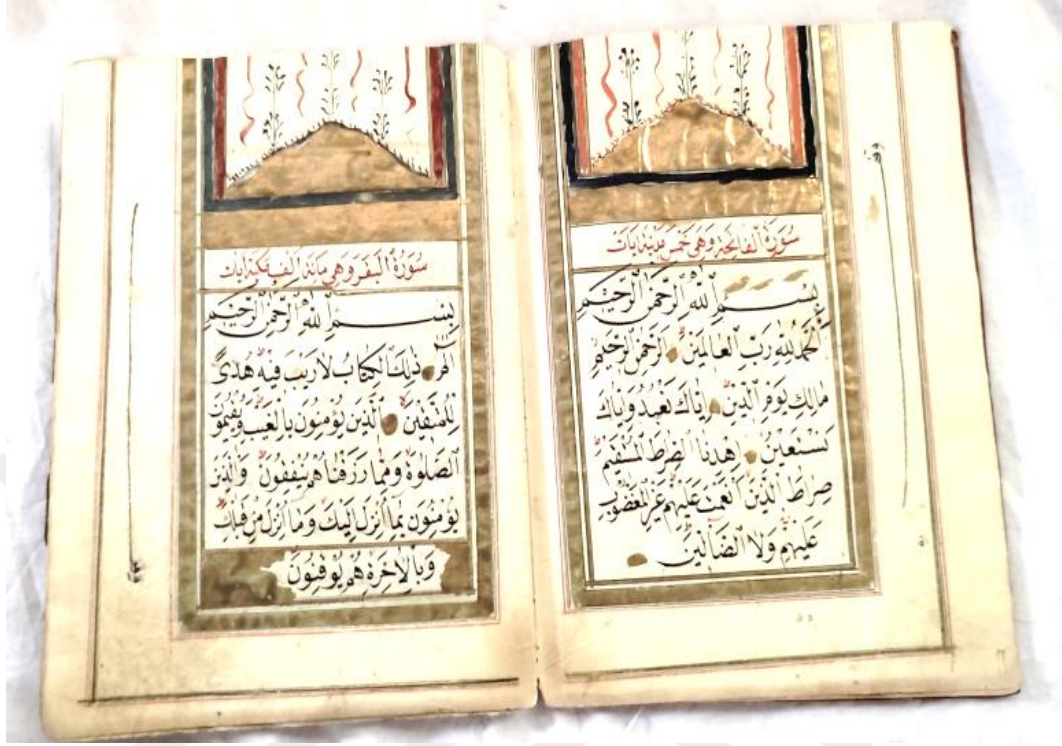 سُورَةُ الْفَاتِحَةِ وَهِيَ خَمْسَ
بِسْمِ اللّٰهِ الرَّحْمٰنِ الرَّحِيْمِ
اَلْحَمْدُ لِلّٰهِ رَبِّ الْعَالَمِيْنَ الرَّحْمٰنِ الرَّحِيْمِ
مَالِكِ يَوْمِ الدِّيْنِ اِيَّاكَ نَعْبُدُ وَاِيَّاكَ
نَسْتَعِيْنُ اِهْدِنَا الصِّرَاطَ الْمُسْتَقِيْمَ
صِرَاطَ الَّذِيْنَ اَنْعَمْتَ عَلَيْهِمْ غَيْرِ الْمَغْضُوْبِ
عَلَيْهِمْ وَلَا الضَّالِّيْنَ
سُوْرَةُ الْبَقَرِ وَهِيَ مِائَة
بِسْمِ اللّٰهِ الرَّحْمٰنِ الرَّحِيْمِ
الٓمٓ ذٰلِكَ الْكِتَابُ لَا رَيْبَ فِيْهِ هُدًى
لِلْمُتَّقِيْنَ الَّذِيْنَ يُؤْمِنُوْنَ بِالْغَيْبِ وَيُقِيْمُوْنَ
الصَّلٰوةَ وَمِمَّا رَزَقْنَاهُمْ يُنْفِقُوْنَ وَالَّذِيْنَ
يُؤْمِنُوْنَ بِمَآ اُنْزِلَ اِلَيْكَ وَمَا اُنْزِلَ مِنْ قَبْلِكَ
وَبِالْاٰخِرَةِ هُمْ يُوْقِنُوْنَ